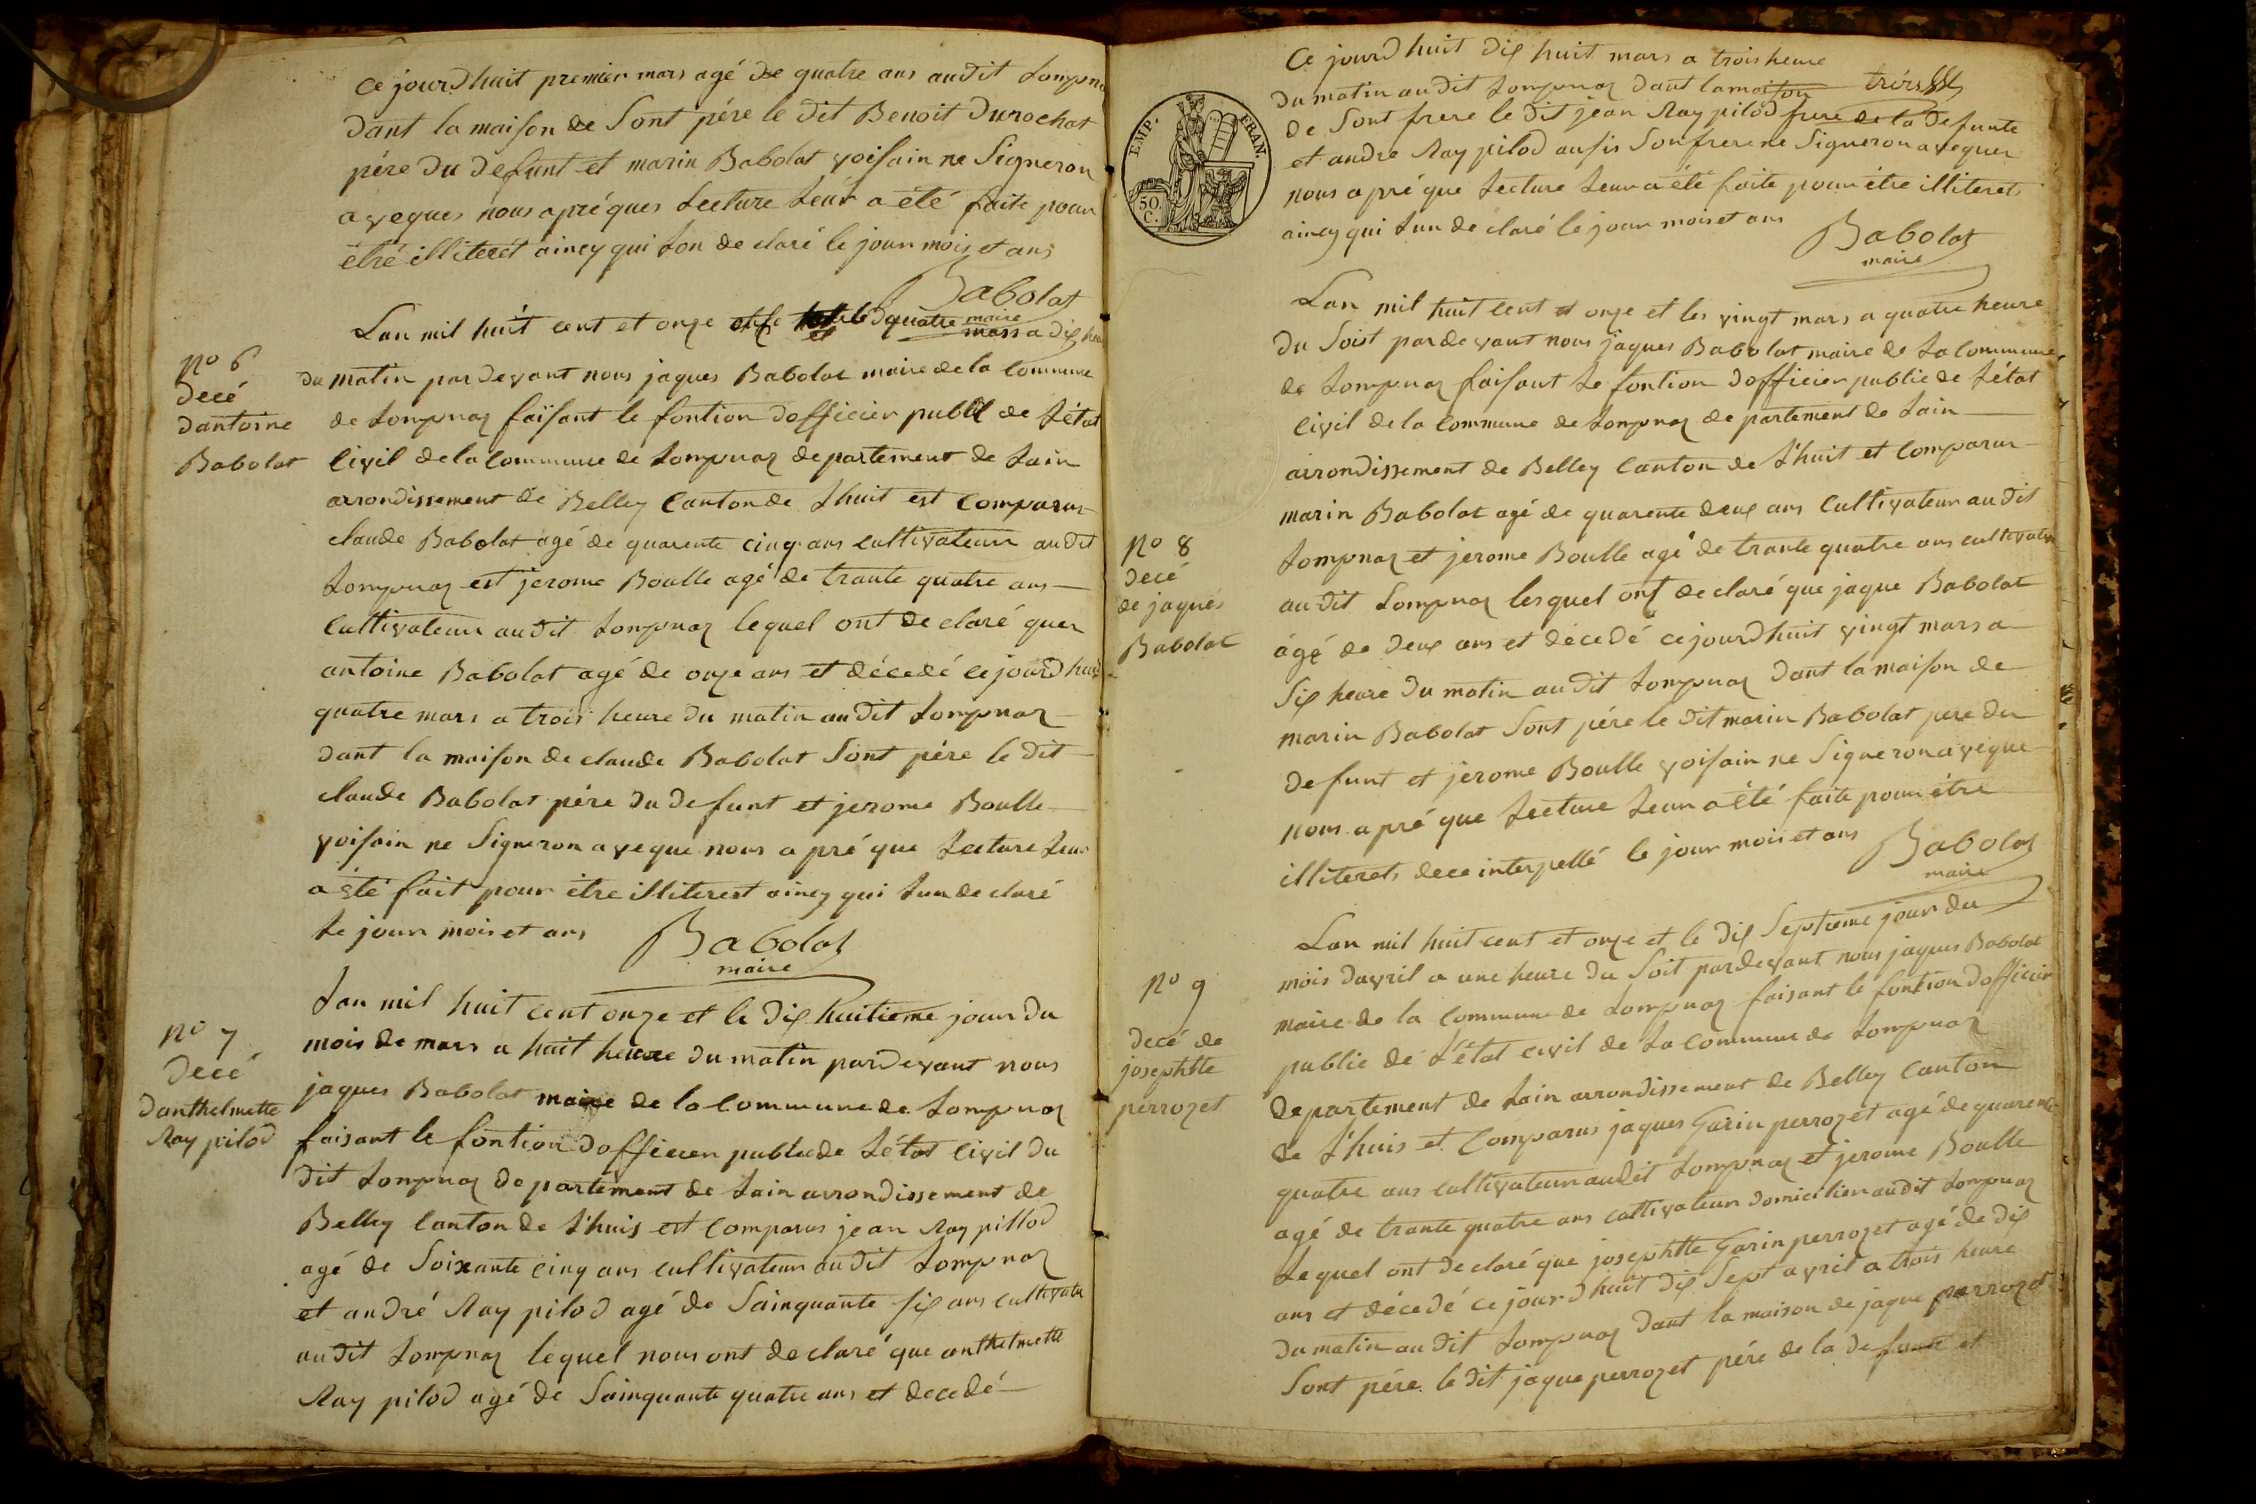 ce jourdhuit premier mars agé de quatre ans audit Lompnaz
dant la maison de sont pére le dit Benoit Durochat
pére du defunt et marin Babolat voisain ne signeron
aveques nous apréques lecture leur a été faite pour
être illiterét aincy qui lon de claré le jour mois et ans
Babolat
maire
Lan mil huit cent et onze et le quatre mars a dix heure
No 6
decé
dantoine
Babolat
du matin pardevant nous jaques Babolat maire de la commune
de Lompnaz faisant le fontion dofficier public de létat
civil de la commune de Lompnaz departement de Lain
arrondissement de Belley canton de Lhuit est comparus
claude Babolat agé de quarente cinq ans cultivateur audit
Lompnaz est jerome Boulle agé de trante quatre ans
cultivateur audit Lompnaz lequel ont de claré quer
antoine Babolat agé de onze ans et décedé ce jourdhuit
quatre mars a trois heure du matin audit Lompnaz
dant la maison de claude Babolat sont pére le dit
claude Babolat pére du defunt et jerome Boulle
voisain ne signeron aveque nous a pré que lecture leur
a été fait pour être illiterest aincy qui lun de claré
le jour mois et ans
Babolat
maire
No 7
decé
danthelmette
Ray pilod
Lan mil huit cent onze et le dix huitieme jour du
mois de mars a huit heure du matin pardevant nous
jaques Babolat maire de la commune de Lompnaz
faisant le fontion dofficier public de létat civil du
dit Lompnaz departement de Lain arrondissement de
Belley canton de Lhuis est comparus jean Ray pillod
agé de soixante cinq ans cultivateur audit Lompnaz
et andré Ray pilod agé de sainquante six ans cultivateur
audit Lompnaz lequel nous ont de claré que anthelmette
Ray pilod agé de sainquante quatre ans et decedé
EMP. FRAN.
50 C.
Ce jourdhuit dix huit mars a trois heure
du matin audit Lompnaz dant la maison
de sont frere le dit jean Ray pilod frere de la defunte
et andre Ray pilod ausis son frere ne signeron avequer
nous a pré que lecture leur a été faite pour être illiterets
aincy qui lun de claré le jour mois et ans
Babolat
maire
Lan mil huit cent et onze et les vingt mars a quatre heure
du soist pardevant nous jaques Babolat maire de la commune
de Lompnaz faisant le fontion dofficier public de létat
civil de la commune de Lompnaz departement de Lain
arrondissement de Belley canton de Lhuit et comparus
marin Babolat agé de quarente deux ans cultivateur audit
No 8
decé
de jaques
Babolat
Lompnaz et jerome Boulle agé de trante quatre ans cultivateur
audit Lompnaz lesquel ont de claré que jaque Babolat
âgé de deux ans et décedé ce jourdhuit vingt mars a
six heure du matin audit Lompnaz dant la maison de
marin Babolat sont pére le dit marin Babolat pere du
defunt et jerome Boulle voisain ne signeron aveque
nous a pré que lecture leur a été faite pour être
illiterets de ce interpellé le jour mois et ans
Babolat
maire
Lan mil huit cent et onze et le dix septieme jour du
No 9
decé de
josephtte
perrozet
mois davril a une heure du soit pardevant nous jaques Babolat
maire de la commune de Lompnaz faisant le fontion dofficier
public de létat civil de la commune de Lompnaz
departement de Lain arrondissement de Belley canton
de Lhuis et comparus jaques Garin perrozet agé de quarente
quatre ans cultivateur audit Lompnaz et jerome Boulle
agé de trante quatre ans cultivateur domicilier audit Lompnaz
lequel ont de claré que josephtte Garin perrozet agé de dix
ans et décedé ce jourdhuit dix sept avril a trois heure
du matin audit Lompnaz dant la maison de jaque perrozet
sont pére le dit jaque perrozet pére de la defunte et